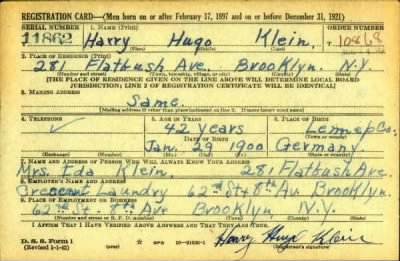 REGISTRATION CARD—(Men born on or after February 17, 1897 and on or before December 31, 1921)
SERIAL NUMBER 1. NAME (Print) ORDER NUMBER
11862 Harry Hugo Klein. T 10868
(First) (Middle) (Last)
2. PLACE OF RESIDENCE (Print)
281 Flatbush Ave. Brooklyn. N.Y.
(Number and street) (Town, township, village, or city) (County) (State)
[THE PLACE OF RESIDENCE GIVEN ON THE LINE ABOVE WILL DETERMINE LOCAL BOARD
JURISDICTION; LINE 2 OF REGISTRATION CERTIFICATE WILL BE IDENTICAL]
3. MAILING ADDRESS
Same.
[Mailing address if other than place indicated on line 2. If same insert word same]
4. TELEPHONE 5. AGE IN YEARS 6. PLACE OF BIRTH
✓ 42 years Lennep Co.
DATE OF BIRTH (Town or county)
Jan. 29 1900 Germany.
(Exchange) (Number) (Mo.) (Day) (Yr.) (State or country)
7. NAME AND ADDRESS OF PERSON WHO WILL ALWAYS KNOW YOUR ADDRESS
Mrs. Eda Klein. 281 Flatbush Ave.
8. EMPLOYER'S NAME AND ADDRESS
Crescent Laundry 62nd St & 8th Av. Brooklyn.
9. PLACE OF EMPLOYMENT OR BUSINESS
62nd St. 8th Ave Brooklyn. N.Y.
(Number and street or R. F. D. number) (Town) (County) (State)
I AFFIRM THAT I HAVE VERIFIED ABOVE ANSWERS AND THAT THEY ARE TRUE.
D. S. S. Form 1
(Revised 1-1-42) GPO 16—21630-1 Harry Hugo Klein
(Registrant's signature)